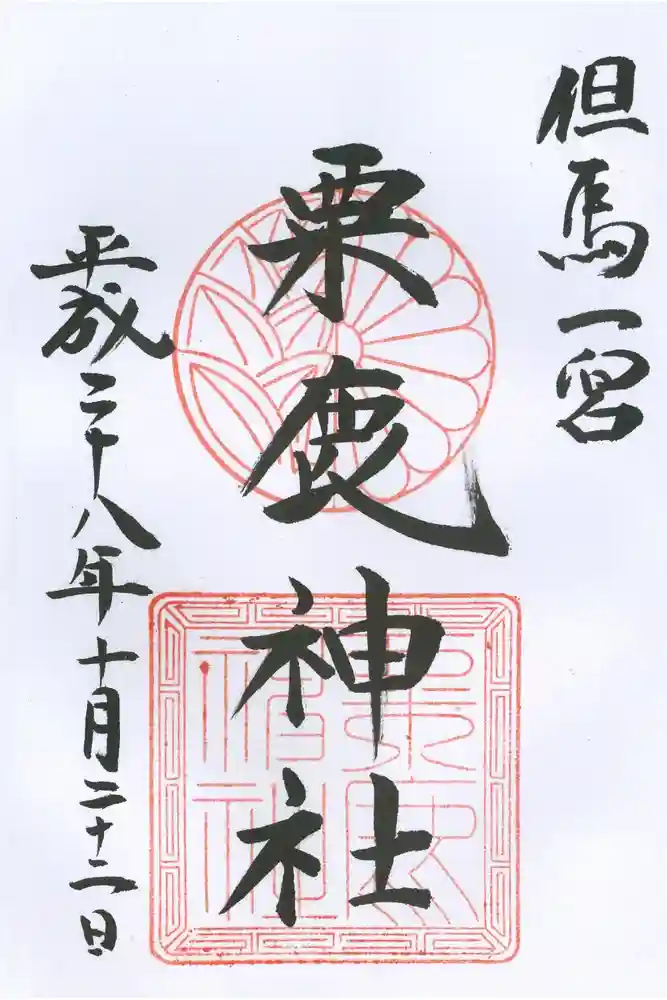 但馬一宮
粟鹿神社
平成二十八年十月二十二日
粟鹿
神社